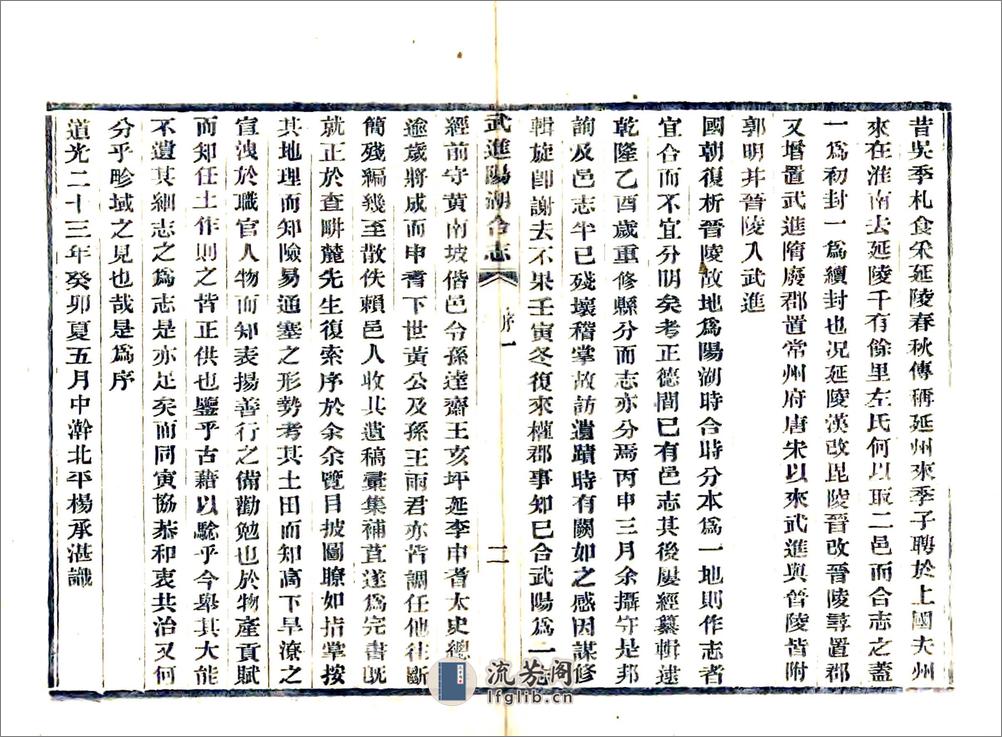 昔吳季札食采延陵春秋傳稱延州來季子聘於上國夫州
來在淮南去延陵千有餘里左氏何以取二邑而合志之蓋
一爲初封一爲續封也况延陵漢改毘陵晉改晉陵尋置郡
又增置武進隋廢郡置常州府唐宋以來武進與晉陵皆附
郭明幷晉陵入武進
國朝復析晉陵故地爲陽湖時合時分本爲一地則作志者
宜合而不宜分明矣考正德間已有邑志其後屢經纂輯逮
乾隆乙酉歲重修縣分而志亦分焉丙申三月余攝守是邦
詢及邑志半已殘壞稽掌故訪遺蹟時有闕如之感因謀修
輯旋卽謝去不果壬寅冬復來權郡事知已合武陽爲一
武進陽湖合志
序一
二
經前守黃南坡偕邑令孫達齋王亥坪延李申耆太史總
塗歲將成而申耆下世黃公及孫王兩君亦皆調任他往斷
簡殘編幾至散佚賴邑人收其遺稿彙集補苴遂爲完書旣
就正於查畊麓先生復索序於余余覽目披圖瞭如指掌按
其地理而知險易通塞之形勢考其土田而知高下旱潦之
宣洩於職官人物而知表揚善行之備勸勉也於物產貢賦
而知任土作則之皆正供也鑒乎古藉以騐乎今舉其大能
不遺其細志之爲志是亦足矣而同寅協恭和衷共治又何
分乎畛域之見也哉是爲序
道光二十三年癸卯夏五月中澣北平楊承湛識
流芳阁
lfglib.cn